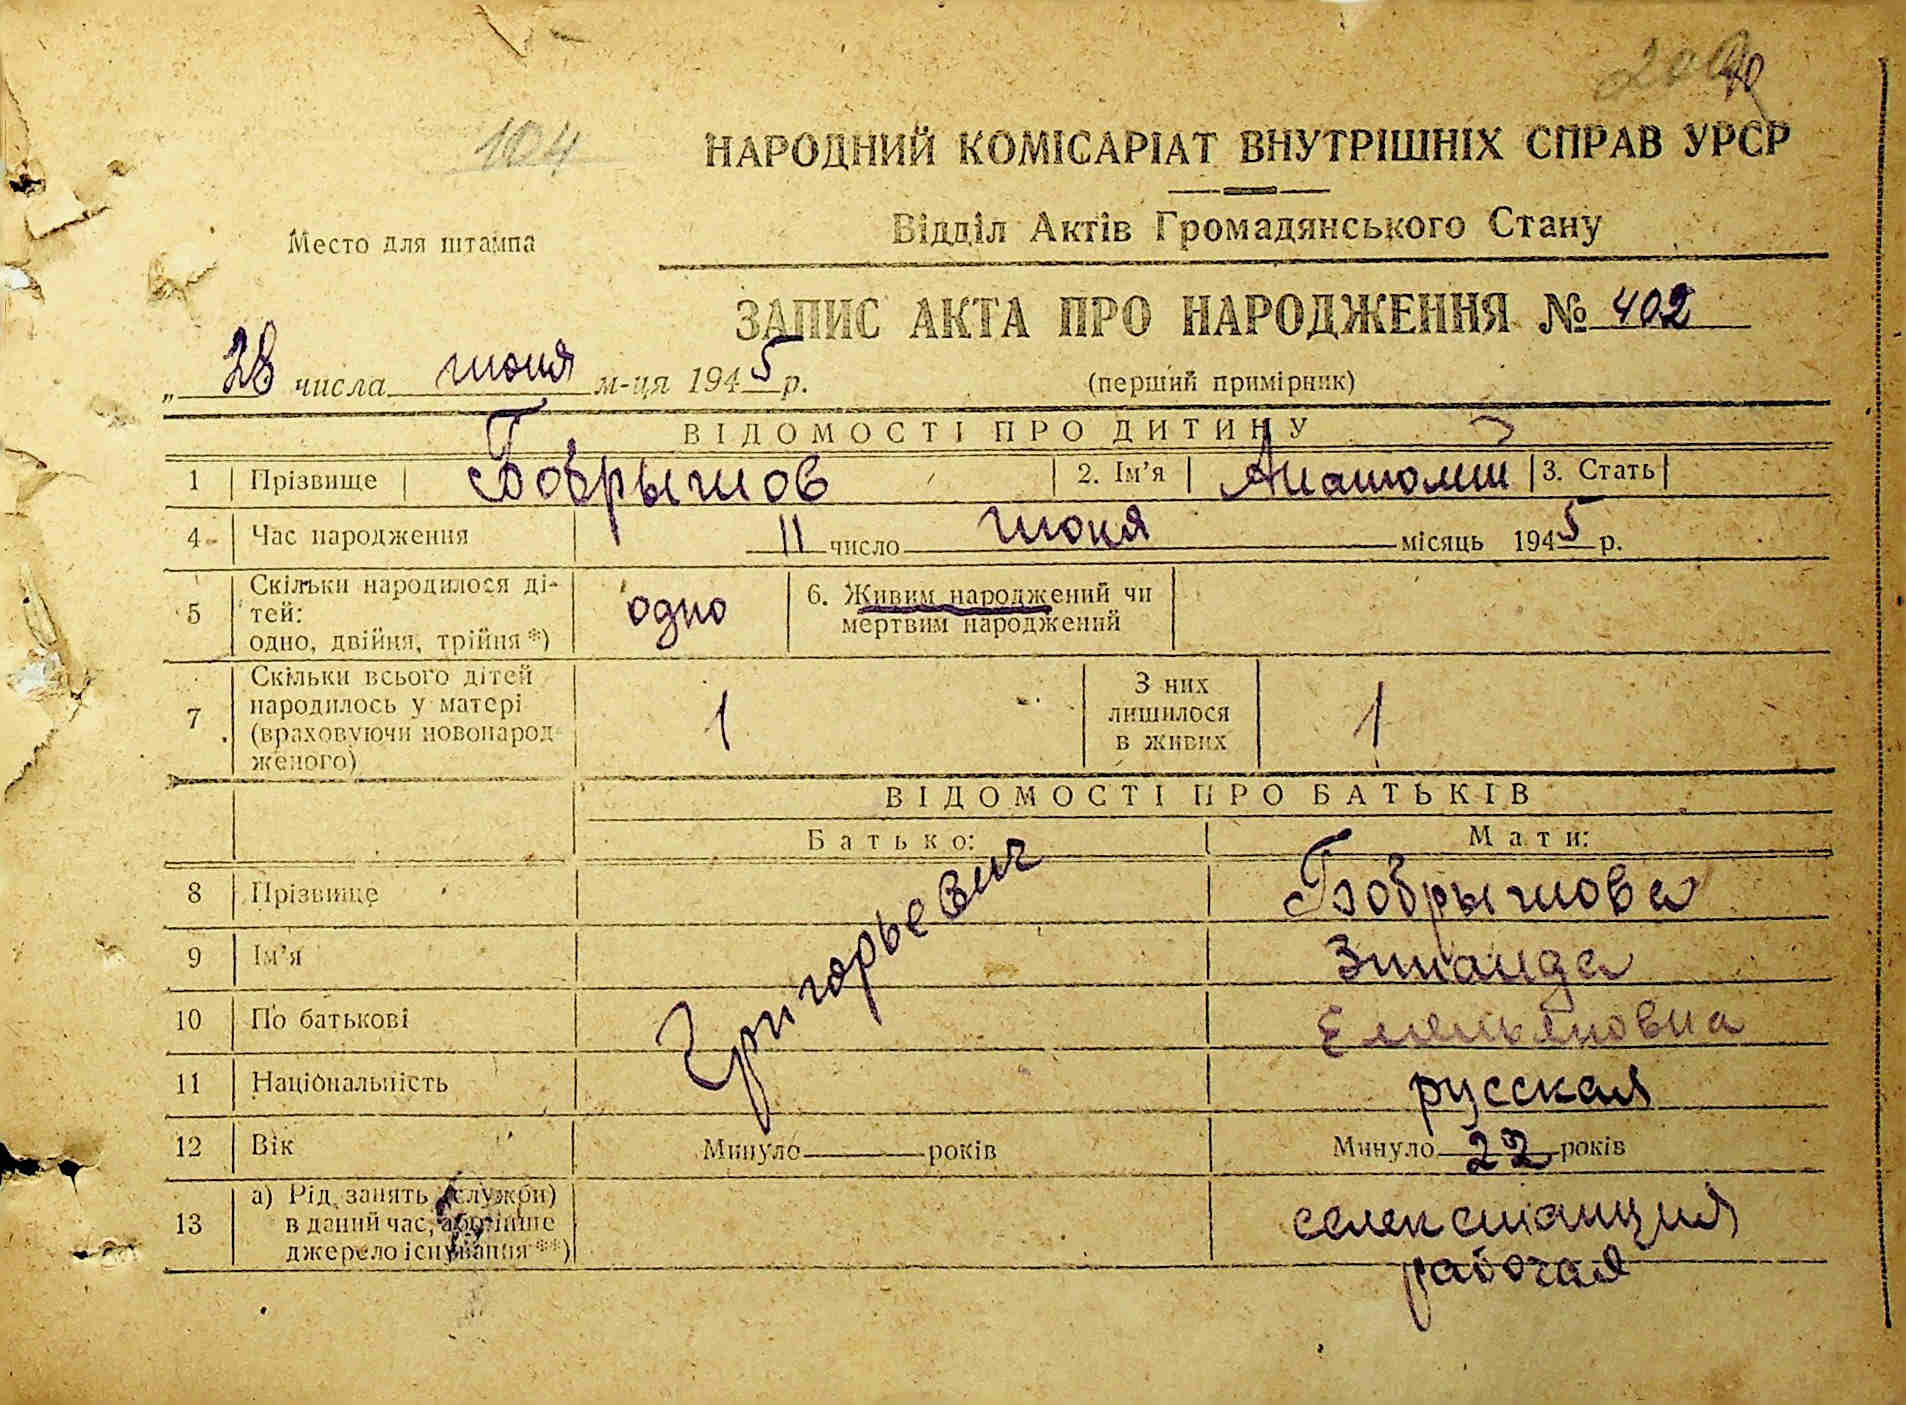 104
НАРОДНИЙ КОМІСАРІАТ ВНУТРІШНІХ СПРАВ УРСР
Відділ Актів Громадянського Стану
Место для штампа
ЗАПИС АКТА ПРО НАРОДЖЕННЯ № 402
„ 28 числа июня м-ця 1945 р.
(перший примірник)
ВІДОМОСТІ ПРО ДИТИНУ
1 Прізвище Бобрышов 2. Ім'я Анатолий 3. Стать
4 Час народження 11 число июня місяць 1945 р.
5 Скільки народилося ді-
тей:
одно, двійня, трійня *)
одно
6. Живим народжений чи
мертвим народжений
7 Скільки всього дітей
народилось у матері
(враховуючи новонарод-
женого)
1
З них
лишилося
в живих
1
ВІДОМОСТІ ПРО БАТЬКІВ
Батько: Мати:
Григорьевич
8 Прізвище Бобрышова
9 Ім'я Зинаида
10 По батькові Емельяновна
11 Національність русская
12 Вік Минуло років Минуло 22 років
13 а) Рід занять (служби)
в даний час, або інше
джерело існування **)
селекстанция
рабочая